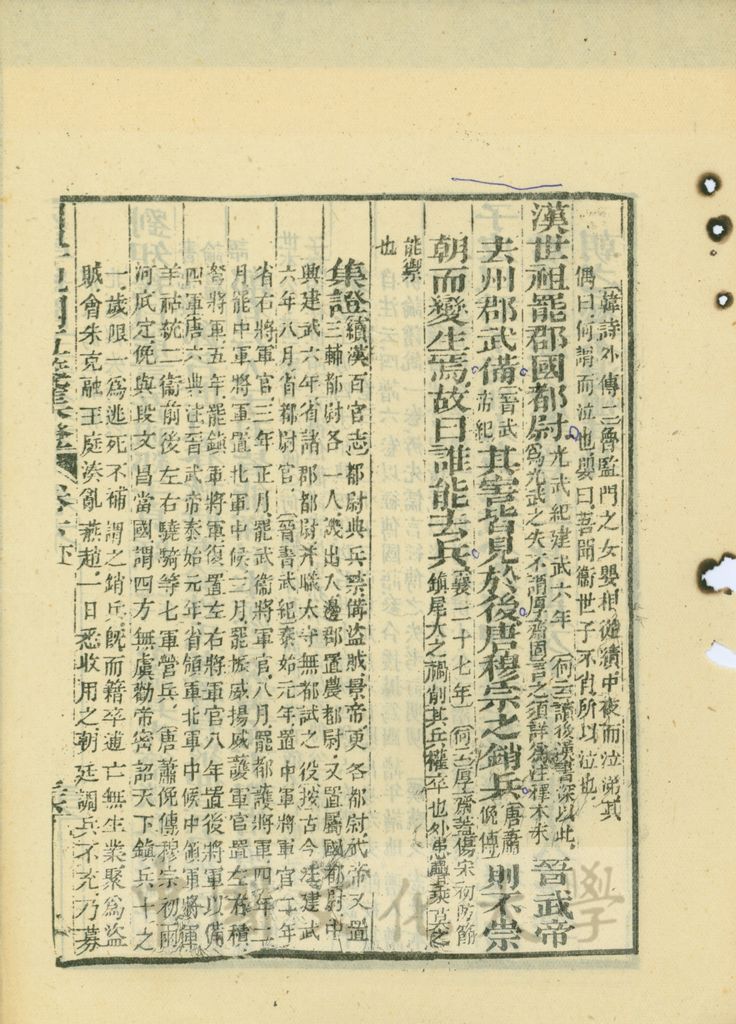 韓詩外傳二魯監門之女嬰相從績中夜而泣涕其
偶曰何謂而泣也嬰曰吾聞衞世子不肖所以泣也
漢世祖罷郡國都尉光武紀建武六年何云讀後漢書深以此
爲光武之失不謂厚齋固言之須詳爲注釋本末吾武帝
去州郡武備晉武帝紀其害皆見於後唐穆宗之銷兵唐蕭俛傳則不崇
朝而變生焉故曰誰能去兵襄二十七年何云厚齋蓋傷宋初防節
鎮尾大之禍削其兵權卒也外患莫之
能禦
也
集證續漢百官志都尉典兵禁備盜賊景帝更名都尉武帝又置
三輔都尉各一人譏出入邊郡置農都尉又置屬國都尉中
興建武六年省諸郡都尉并職太守無都試之役按古今注建武
六年八月省都尉官晉書武紀泰始元年置中軍將軍官二年
省右將軍官三年正月罷武衞將軍官八月罷都護將軍四年二
月罷中軍將軍置北軍中候三月罷振威揚威護軍官置左右積
弩將軍五年罷鎮軍將軍復置左右將軍官八年置後將軍以備
四軍唐六典注晉武帝泰始元年省領軍北軍中候中領軍將軍
羊祜統二衞前後左右驍騎等七軍營兵唐蕭俛傳穆宗初兩
河底定俛與段文昌當國謂四方無虞勸帝密詔天下鎮兵十之
一歲限一爲逃死不補謂之銷兵旣而籍卒逋亡無生業聚爲盜
賊會朱克融王庭湊亂燕趙一日悉收用之朝廷調兵不充乃募